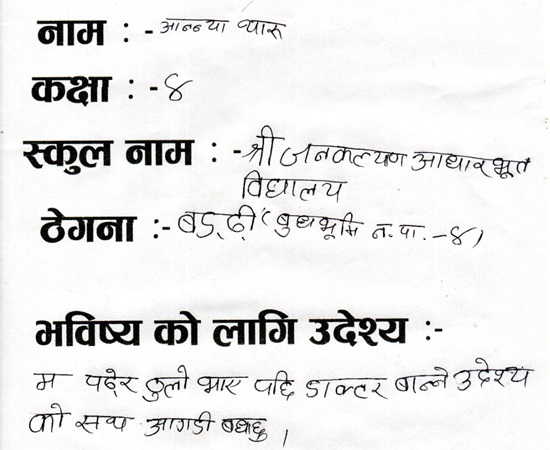 नाम :- आनन्या थारू
कक्षा :- ४
स्कुल नाम :- श्री जनकल्यण आधारभूत
विद्यालय
ठेगना :- बड्ढी (बुध्दभूमि न.पा. -४)
भविष्य को लागि उदेश्य :-
म पढेर ठुलो भाए पछि डाक्टर बान्ने उदेश्य
को साथ आगडी बढ्छु ।